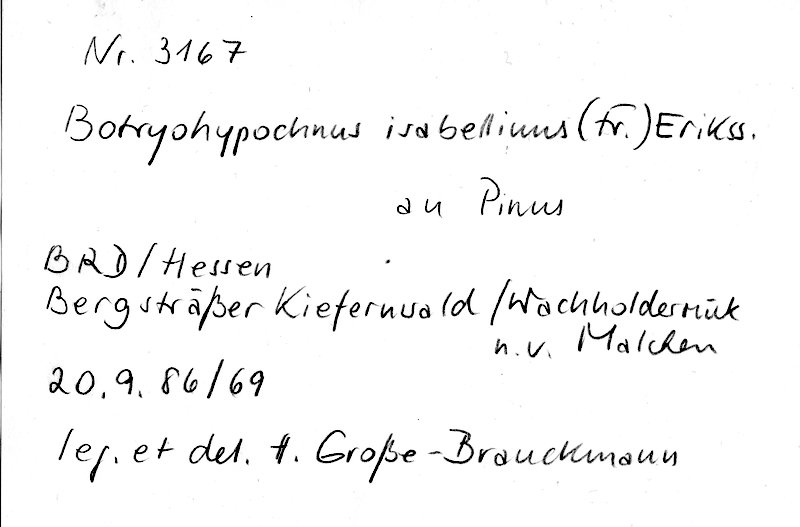 Nr. 3167
Botryohypochnus isabellinus (Fr.) Erikss.
an Pinus
BRD / Hessen
Bergsträßer Kiefernwald / Wachholderrück
n. v. Malchen
20. 9. 86 / 69
leg. et det. H. Große-Brauckmann